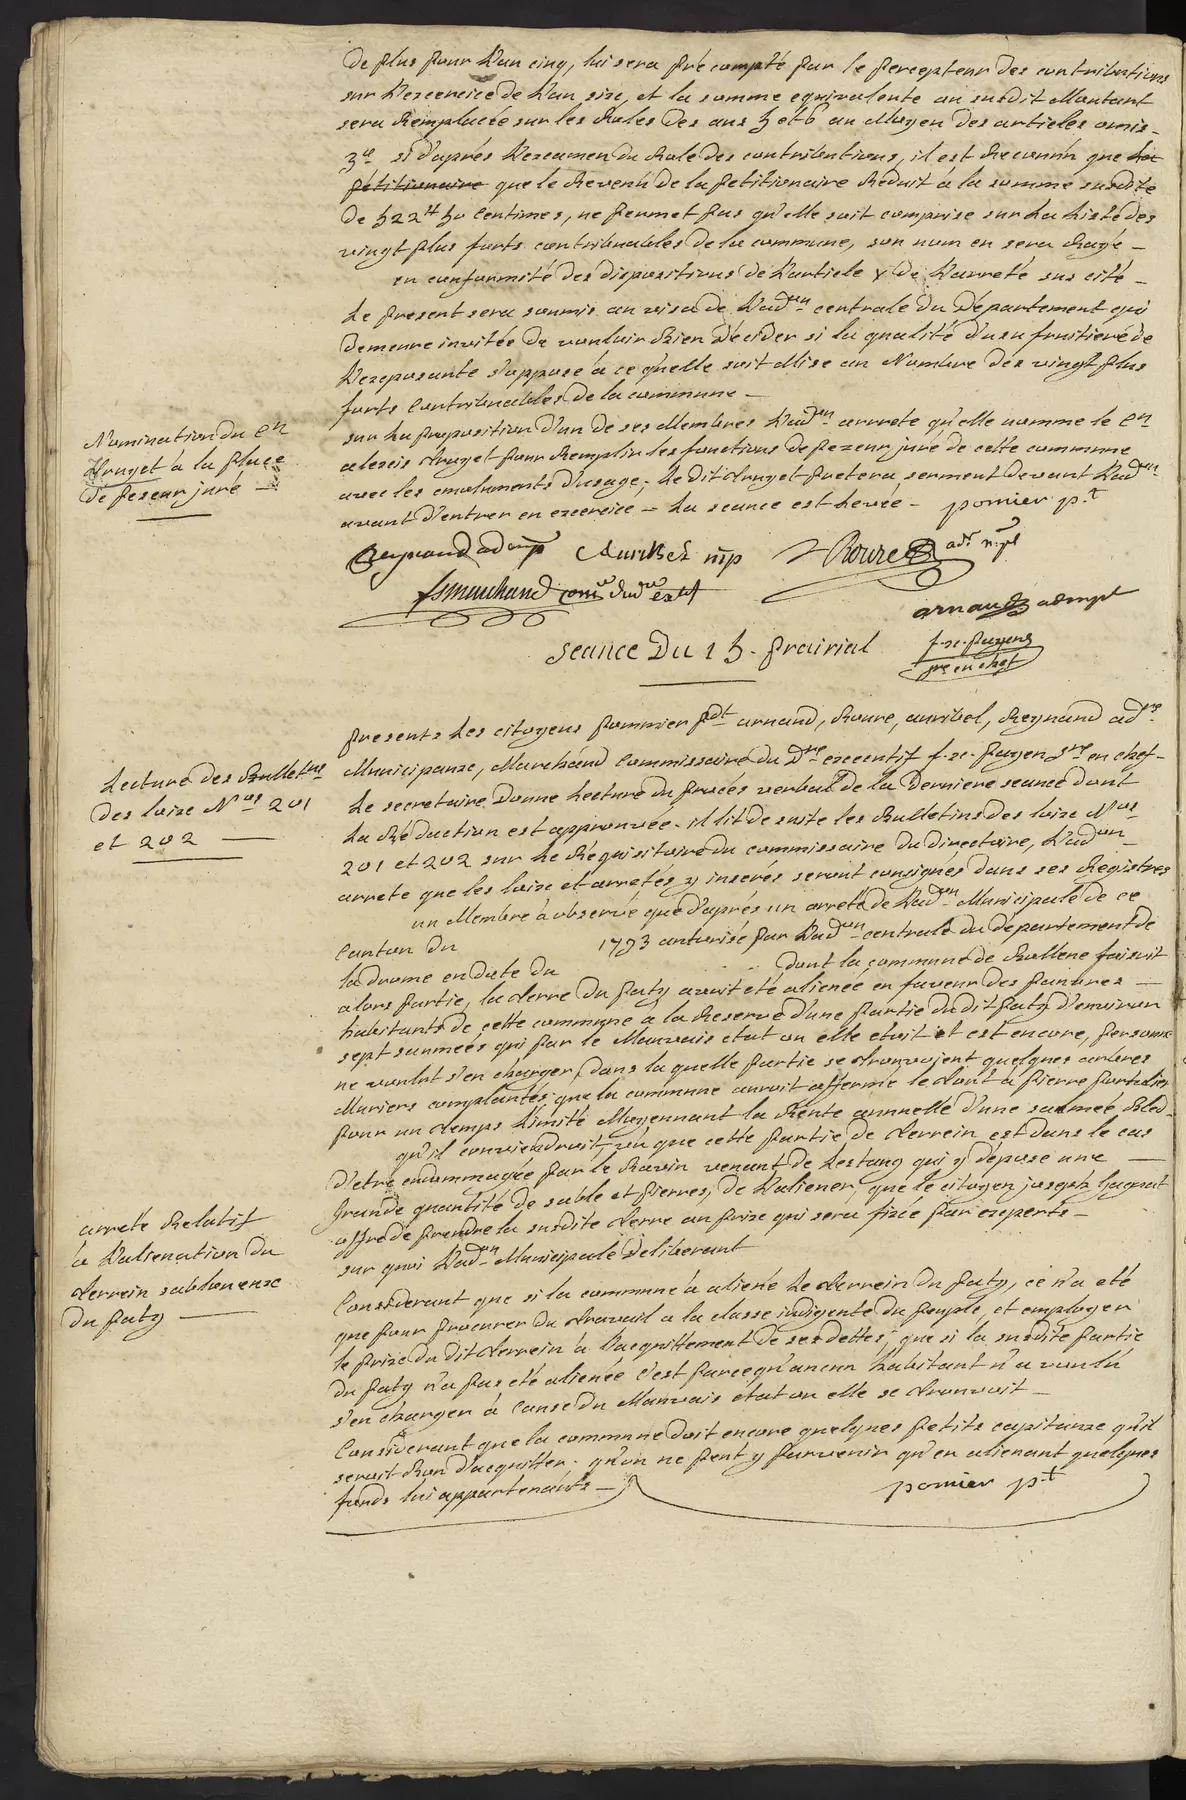 de plus pour l'an cinq, lui sera pré compté par le percepteur des contributions
sur l'exercice de l'an six, et la somme equivalente au susdit Montant
sera Remplacée sur les Roles des ans 5 et 6 au Moyen des articles omis -
3° si d'aprés l'examen du Role des contributions, il est Reconnû que la
pétitionaire que le Revenû de la petitionaire Reduit à la somme susdite
de 522tt 50 Centimes, ne permet pas qu'elle soit comprise sur La Liste des
vingt plus forts contribuables de la commune, son nom en sera Rayé -
en conformité des dispositions de l'article de l'arreté sus cité -
Le present sera soumis au visa de l'adon centrale du Département qui
demeure invitée de vouloir Bien Décider si la qualité d'usufruitiere de
l'exposante s'oppose à ce qu'elle soit Mise au Nombre des vingt plus
forts Contribuables de la commune -
Nomination du Cen
Truget à la place
de peseur juré -
sur La proposition d'un de ses Membres l'adon arrete qu'elle nomme le Cen
alexis Truget pour Remplir les fonctions de pezeur juré de cette commune
avec les emoluments d'usage; Le dit Truget pretera serment devant l'adon
avant d'entrer en exercice - La seance est Levée - pomier p.t
Reynaud ad mp Auribel mp Roure adt mpl
Marchand comre du dre extif
arnaud admpl
seance Du 15 prairial
f-x-payen
sre en chef
presents Les citoyens pommier pdt arnaud, Roure, auribel, Reynaud adres
Municipaux, Marchand Commissaire du Dre executif f-x-payen sre en chef -
Lecture des Bulletins
des loix Nos 201
et 202 -
Le secretaire Donne Lecture du procés verbal de la Derniere seance dont
La Rédaction est approuvée - il lit de suite les Bulletins des loix Nos
201 et 202 sur Le Réquisitoire du commissaire du directoire, l'adon
arrete que les loix et arretés y insérés seront consignés dans ses Registres
un Membre à observé que d'aprés un arreté de l'adon Municipale de ce
Canton du 1793 autorisé par l'adon centrale du departement de
la drome en date du dont la commune de Bollene faisait
alors partie, la terre du paty avoit eté alienée en faveur des pauvres -
habitants de cette commune a la Reserve d'une partie du dit paty d'environ
sept saumeés qui par le Mauvais etat ou elle etoit et est encore, personne
ne voulut s'en charger, dans la quelle partie se trouvoient quelques arbres
Muriers complantés; que la commune auroit affermé le tout à pierre portalier
pour un temps Limité Moyennant la Rente annuelle d'une saumeé Bled -
qu'il conviendroit, vu que cette partie de terrein est dans le cas
d'etre endommagée par le Ravin venant de Lestang qui y dépose une -
grande quantité de sable et pierres, de l'aliener, que le citoyen joseph
offre de prendre la susdite terre au prix qui sera fixée par experts -
arreté Relatif
à l'alienation du
terrein sablonenx
du paty -
sur quoi l'adon Municipale deliberant
Considerant que si la commune à aliené Le terrein du paty, ce n'a eté
que pour procurer du travail a la classe indigente du peuple, et employer
le prix du dit terrein à l'acquittement de ses dettes; que si la susdite partie
du paty n'a pas eté alienée c'est parcequ'aucun habitant n'a voulu
s'en charger à Cause du Mauvais état ou elle se trouvoit -
Considerant que la commune doit encore quelques petits capitaux qu'il
seroit Bon d'acquitter - qu'on ne peut y parvenir qu'en alienant quelques
fonds lui appartenants -
pomier p.t